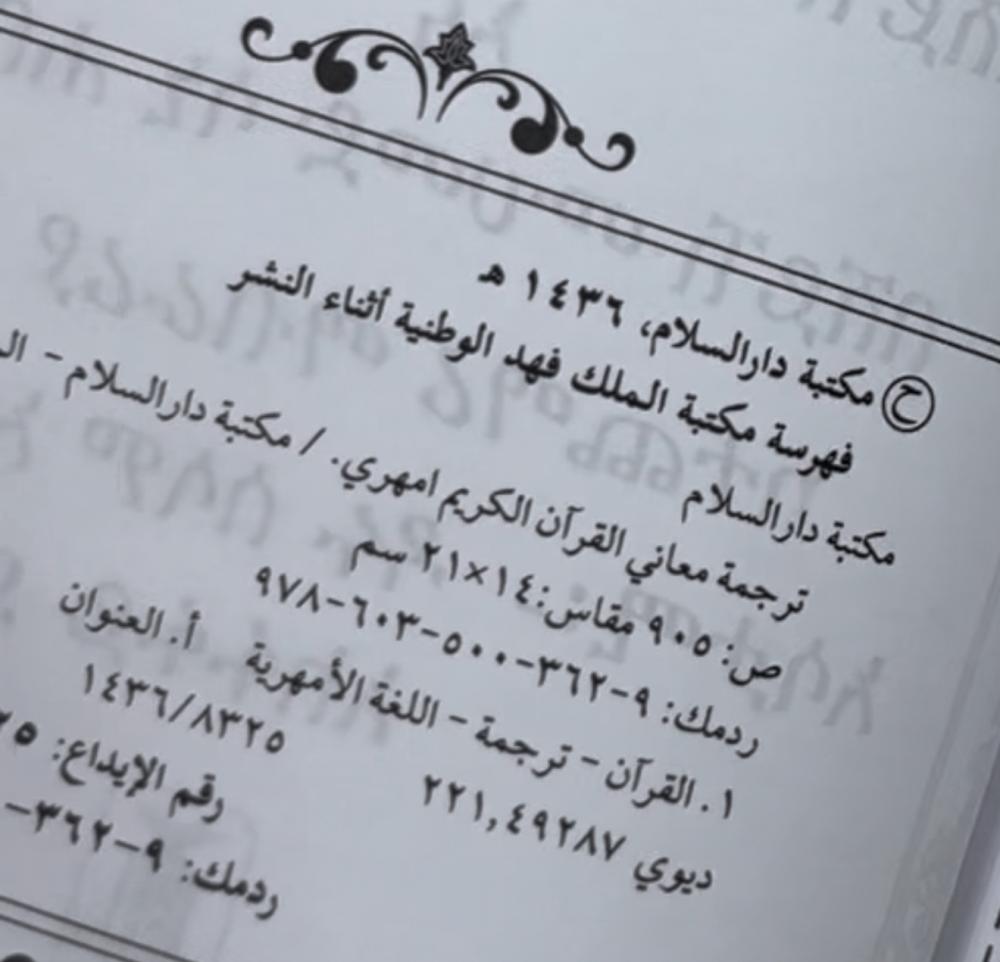 ح مكتبة دارالسلام، ١٤٣٦ هـ
فهرسة مكتبة الملك فهد الوطنية أثناء النشر
مكتبة دارالسلام
ترجمة معاني القرآن الكريم امهري. / مكتبة دارالسلام -
ص: ٩٠٥ مقاس: ١٤×٢١ سم
ردمك: ٩-٣٦٢-٥٠٠-٦٠٣-٩٧٨
١. القرآن - ترجمة - اللغة الأمهرية أ. العنوان
ديوي ٢٢١,٤٩٢٨٧ ١٤٣٦/٨٣٢٥
رقم الإيداع:
ردمك: ٩-٣٦٢-